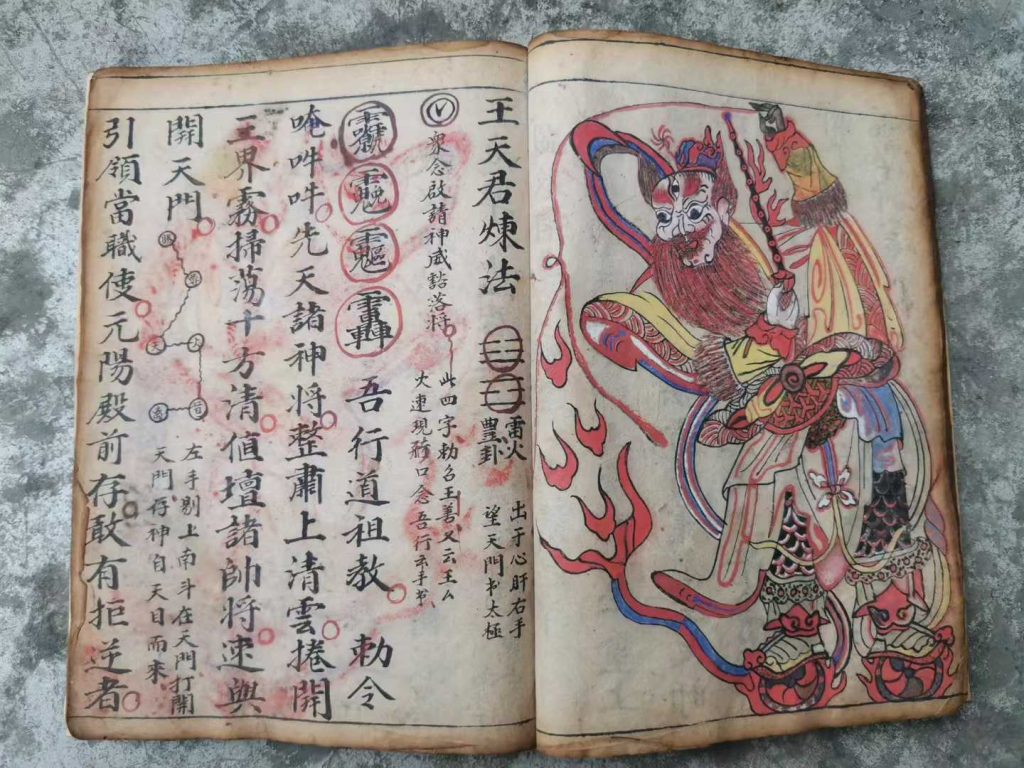 王天君煉法
雷火
豊卦
出于心肝右手
望天門书太極
衆念啟請神威豁落將
此四字勅召王善又云王厶
火連現
口念吾行云手书
吾行道祖教 勅令
唵吽吽先天諸神將整肅上清雲捲開
三界霧掃蕩十方清值壇諸帥將速與
開天門
左手剔上南斗在天門打開
天門存神自天目而來
引領當職使元陽殿前存敢有拒逆者